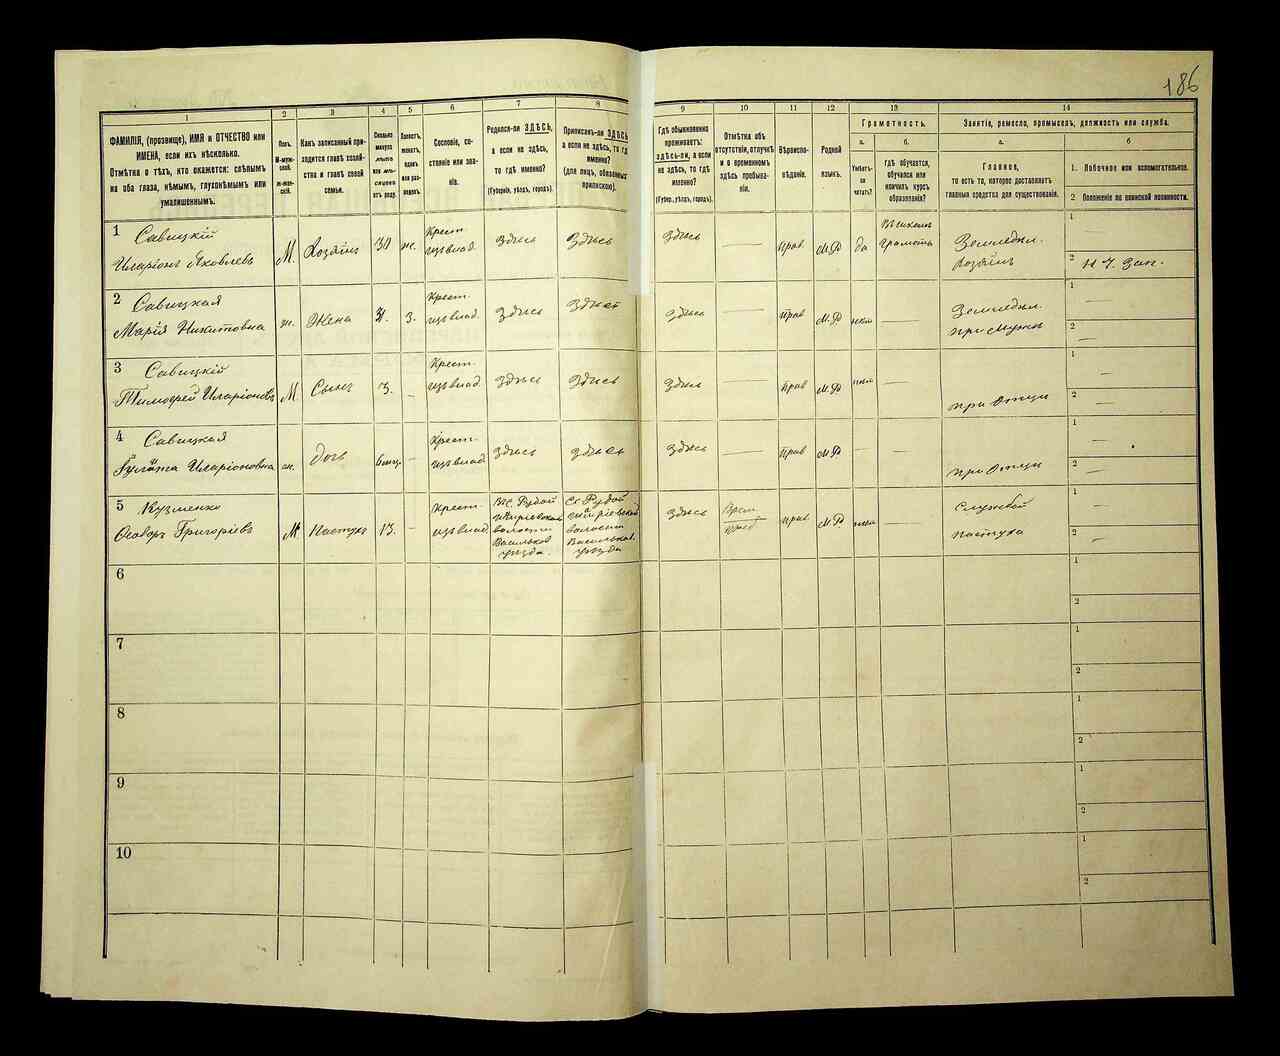 186
1
2
3
4
5
6
7
8
9
10
11
12
13
14
ФАМИЛІЯ, (прозвище), ИМЯ и ОТЧЕСТВО или
ИМЕНА, если ихъ нѣсколько.
Отмѣтка о тѣхъ, кто окажется: слѣпымъ
на оба глаза, нѣмымъ, глухонѣмымъ или
умалишеннымъ.
Полъ.
М-муж-
ской.
ж-жен-
скій.
Какъ записанный при-
ходится главѣ хозяй-
ства и главѣ своей
семьи.
Сколько
минуло
лѣтъ
или мѣ-
сяцевъ
отъ роду.
Холостъ,
женатъ,
вдовъ
или раз-
веденъ.
Сословіе, со-
стояніе или зва-
ніе.
Родился-ли ЗДѢСЬ,
а если не здѣсь,
то гдѣ именно?
(Губернія, уѣздъ, городъ).
Приписанъ-ли ЗДѢСЬ,
а если не здѣсь, то гдѣ
именно?
(для лицъ, обязанныхъ
припискою).
Гдѣ обыкновенно
проживаетъ:
здѣсь-ли, а если
не здѣсь, то гдѣ
именно?
(Губер., уѣздъ, городъ).
Отмѣтка объ
отсутствіи, отлучкѣ
и о временномъ
здѣсь пребыва-
ніи.
Вѣроиспо-
вѣданіе.
Родной
языкъ.
Грамотность.
а.
б.
Умѣетъ-
ли
читать?
гдѣ обучается,
обучался или
кончилъ курсъ
образованія?
Занятіе, ремесло, промыселъ, должность или служба.
а.
б
Главное,
то есть то, которое доставляетъ
главныя средства для существованія.
1. Побочное или вспомогательное.
2 Положеніе по воинской повинности.
1
Савицкій
Иларіонъ Яковлевъ
М.
Хозяинъ
30
ж.
Крест.
изъ влад.
Здѣсь
Здѣсь
Здѣсь
—
прав
М.Р
да
грамота
Земледѣл.
Хозяинъ
1
—
2
Н Ч. Зап.
2
Савицкая
Марія Никитовна
ж.
Жена
З.
Крест.
изъ влад.
Здѣсь
Здѣсь
Здѣсь
—
прав
М.Р
—
Земледѣл.
при мужѣ
1
—
2
—
3
Савицкій
Тимофей Иларіоновъ
М
Сынъ
3.
—
Крест.
изъ влад
Здѣсь
Здѣсь
Здѣсь
—
прав
М.Р
—
при Отцѣ
1
—
2
—
4
Савицкая
Иларіоновна
ж.
дочь
6 мѣц.
—
Крест.
изъ влад
Здѣсь
Здѣсь
Здѣсь
—
прав
М.Р
—
—
при Отцѣ
1
—
2
—
5
Кузменко
Ѳеодоръ Григоріевъ
М
Пастухъ
13.
—
Крест.
изъ влад.
волости
Васильков.
уѣзда.
волости
Васильков.
уѣзда
Здѣсь
Врем.
преб
прав
М.Р
Службой
пастуха
1
—
2
—
6
1
2
7
1
2
8
1
2
9
1
2
10
1
2